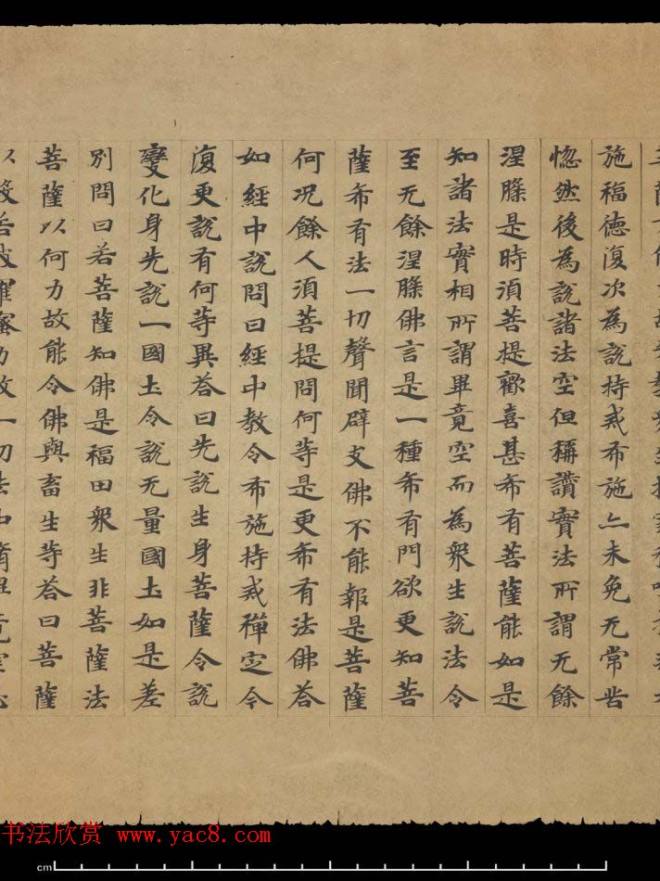 施福德復次為說持戒布施亦未免无常苦
惚然後為說諸法空但稱讚實法所謂无餘
涅槃是時須菩提歡喜甚希有菩薩能如是
知諸法實相所謂畢竟空而為衆生說法令
至无餘涅槃佛言是一種希有門欲更知菩
薩希有法一切聲聞辟支佛不能報是菩薩
何况餘人須菩提問何等是更希有法佛荅
如經中說問曰經中教令布施持戒禪定令
復更說有何等異荅曰先說生身菩薩令說
變化身先說一國土令說无量國土如是差
別問曰若菩薩知佛是福田衆生非菩薩法
菩薩以何力故能令佛與畜生等荅曰菩薩
以般若波羅蜜力故一切法中
书法欣赏 www.yac8.com
cm